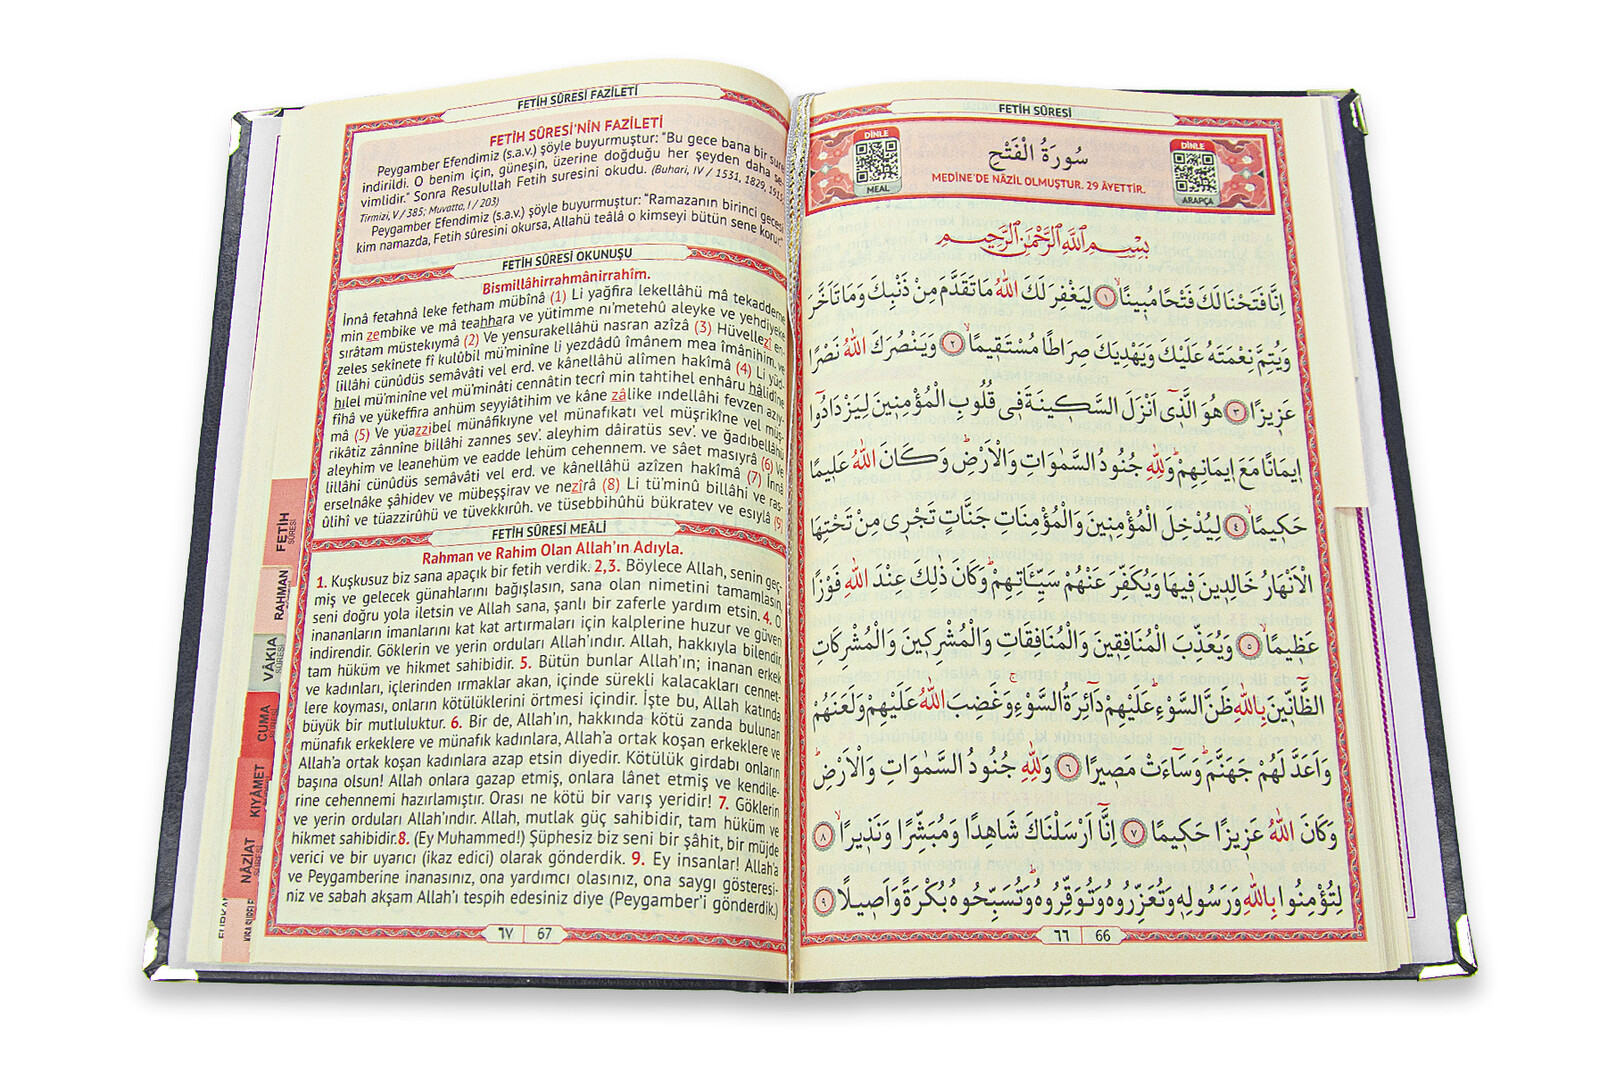 FETİH SÛRESİ
DİNLE
MEAL
سُورَةُ الْفَتْحِ
MEDİNE'DE NÂZİL OLMUŞTUR. 29 ÂYETTİR.
DİNLE
ARAPÇA
بِسْمِ اللّٰهِ الرَّحْمٰنِ الرَّحِيمِ
اِنَّا فَتَحْنَا لَكَ فَتْحًا مُبِينًاۙ ﴿١﴾ لِيَغْفِرَ لَكَ اللّٰهُ مَا تَقَدَّمَ مِنْ ذَنْبِكَ وَمَا تَاَخَّرَ
وَيُتِمَّ نِعْمَتَهُ عَلَيْكَ وَيَهْدِيَكَ صِرَاطًا مُسْتَقِيمًاۙ ﴿٢﴾ وَيَنْصُرَكَ اللّٰهُ نَصْرًا
عَزِيزًا ﴿٣﴾ هُوَ الَّذِٓى اَنْزَلَ السَّكِينَةَ فِى قُلُوبِ الْمُؤْمِنِينَ لِيَزْدَادُٓوا
اِيمَانًا مَعَ اِيمَانِهِمْۜ وَلِلّٰهِ جُنُودُ السَّمٰوَاتِ وَالْاَرْضِۜ وَكَانَ اللّٰهُ عَلِيمًا
حَكِيمًاۙ ﴿٤﴾ لِيُدْخِلَ الْمُؤْمِنِينَ وَالْمُؤْمِنَاتِ جَنَّاتٍ تَجْرِى مِنْ تَحْتِهَا
الْاَنْهَارُ خَالِدِينَ فِيهَا وَيُكَفِّرَ عَنْهُمْ سَيِّـَٔاتِهِمْۜ وَكَانَ ذٰلِكَ عِنْدَ اللّٰهِ فَوْزًا
عَظِيمًاۙ ﴿٥﴾ وَيُعَذِّبَ الْمُنَافِقِينَ وَالْمُنَافِقَاتِ وَالْمُشْرِكِينَ وَالْمُشْرِكَاتِ
الظَّٓانِّينَ بِاللّٰهِ ظَنَّ السَّوْءِۜ عَلَيْهِمْ دَٓائِرَةُ السَّوْءِۚ وَغَضِبَ اللّٰهُ عَلَيْهِمْ وَلَعَنَهُمْ
وَاَعَدَّ لَهُمْ جَهَنَّمَۜ وَسَٓاءَتْ مَصِيرًا ﴿٦﴾ وَلِلّٰهِ جُنُودُ السَّمٰوَاتِ وَالْاَرْضِۜ
وَكَانَ اللّٰهُ عَزِيزًا حَكِيمًا ﴿٧﴾ اِنَّٓا اَرْسَلْنَاكَ شَاهِدًا وَمُبَشِّرًا وَنَذِيرًاۙ ﴿٨﴾
لِتُؤْمِنُوا بِاللّٰهِ وَرَسُولِهِ وَتُعَزِّرُوهُ وَتُوَقِّرُوهُۜ وَتُسَبِّحُوهُ بُكْرَةً وَاَصِيلًا ﴿٩﴾
٦٦ 66
FETİH SÛRESİ FAZİLETİ
FETİH SÛRESİ'NİN FAZİLETİ
Peygamber Efendimiz (s.a.v.) şöyle buyurmuştur: "Bu gece bana bir sure
indirildi. O benim için, güneşin, üzerine doğduğu her şeyden daha se-
vimlidir." Sonra Resulullah Fetih suresini okudu. (Buhari, IV / 1531, 1829,
Tirmizi, V / 385; Muvatta, I / 203)
Peygamber Efendimiz (s.a.v.) şöyle buyurmuştur: "Ramazanın birinci gecesi
kim namazda, Fetih sûresini okursa, Allahü teâlâ o kimseyi bütün sene korur."
FETİH SÛRESİ OKUNUŞU
Bismillâhirrahmânirrahîm.
İnnâ fetahnâ leke fetham mübînâ (1) Li yağfira lekellâhü mâ tekaddeme
min zembike ve mâ teahhara ve yütimme ni'metehû aleyke ve yehdiyeke
sırâtam müstekıymâ (2) Ve yensurakellâhü nasran azîzâ (3) Hüvellezî en-
zeles sekînete fî kulûbil mü'minîne li yezdâdû îmânem mea îmânihim. ve
lillâhi cünûdüs semâvâti vel erd. ve kânellâhü alîmen hakîmâ (4) Li yüd-
hılel mü'minîne vel mü'minâti cennâtin tecrî min tahtihel enhâru hâlidîne
fîhâ ve yükeffira anhüm seyyiâtihim ve kâne zâlike ındellâhi fevzen azıy-
mâ (5) Ve yüazzibel münâfikıyne vel münafıkati vel müşrikîne vel müş-
rikâtiz zânnîne billâhi zannes sev'. aleyhim dâiratüs sev'. ve ğadıbellâhü
aleyhim ve leanehüm ve eadde lehüm cehennem. ve sâet masıyrâ (6) Ve
lillâhi cünûdüs semâvâti vel erd. ve kânellâhü azîzen hakîmâ (7) İnnâ
erselnâke şâhidev ve mübeşşirav ve nezîrâ (8) Li tü'minû billâhi ve ras-
ûlihî ve tüazzirûhü ve tüvekkırûh. ve tüsebbihûhü bükratev ve esıylâ (9)
FETİH SÛRESİ MEÂLİ
Rahman ve Rahim Olan Allah'ın Adıyla.
1. Kuşkusuz biz sana apaçık bir fetih verdik. 2,3. Böylece Allah, senin geç-
miş ve gelecek günahlarını bağışlasın, sana olan nimetini tamamlasın,
seni doğru yola iletsin ve Allah sana, şanlı bir zaferle yardım etsin. 4. O,
inananların imanlarını kat kat artırmaları için kalplerine huzur ve güven
indirendir. Göklerin ve yerin orduları Allah'ındır. Allah, hakkıyla bilendir,
tam hüküm ve hikmet sahibidir. 5. Bütün bunlar Allah'ın; inanan erkek
ve kadınları, içlerinden ırmaklar akan, içinde sürekli kalacakları cennet-
lere koyması, onların kötülüklerini örtmesi içindir. İşte bu, Allah katında
büyük bir mutluluktur. 6. Bir de, Allah'ın, hakkında kötü zanda bulunan
münafık erkeklere ve münafık kadınlara, Allah'a ortak koşan erkeklere ve
Allah'a ortak koşan kadınlara azap etsin diyedir. Kötülük girdabı onların
başına olsun! Allah onlara gazap etmiş, onlara lânet etmiş ve kendile-
rine cehennemi hazırlamıştır. Orası ne kötü bir varış yeridir! 7. Göklerin
ve yerin orduları Allah'ındır. Allah, mutlak güç sahibidir, tam hüküm ve
hikmet sahibidir.8. (Ey Muhammed!) Şüphesiz biz seni bir şâhit, bir müjde
verici ve bir uyarıcı (ikaz edici) olarak gönderdik. 9. Ey insanlar! Allah'a
ve Peygamberine inanasınız, ona yardımcı olasınız, ona saygı gösteresi-
niz ve sabah akşam Allah'ı tespih edesiniz diye (Peygamber'i gönderdik.)
٦٧ 67
FETİH
SÛRESİ
RAHMAN
VÂKIA
SÛRESİ
CUMA
SÛRESİ
KIYÂMET
NÂZİAT
SÛRESİ